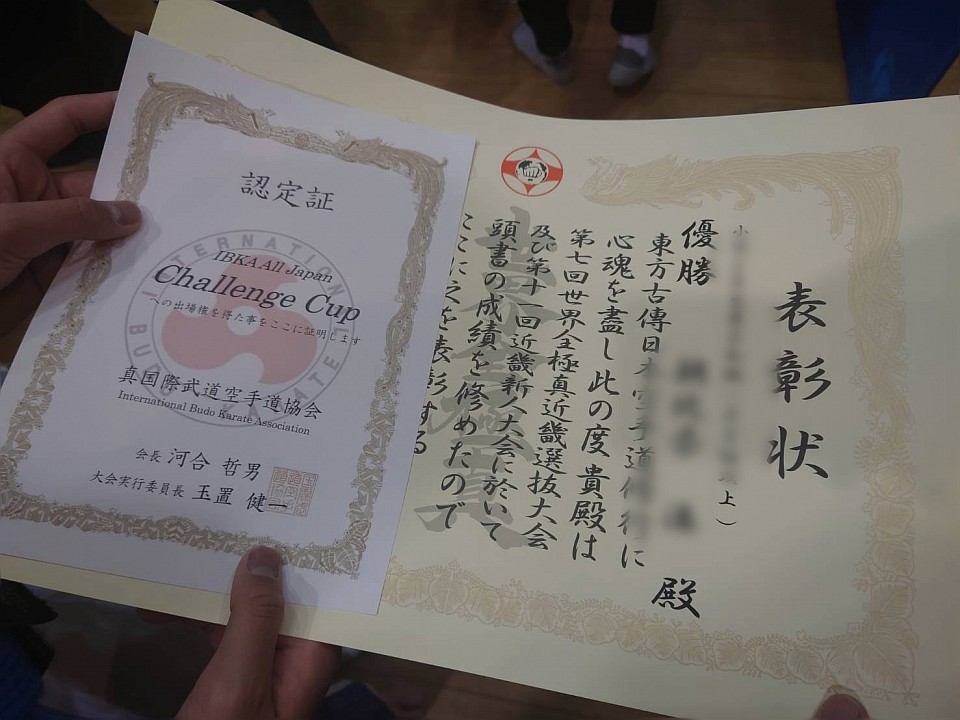 認定証
INTERNATIONAL BUDO KARATE
IBKA All Japan
Challenge Cup
への出場権を得た事をここに証明します
真国際武道空手道協会
International Budo Karate Association
会長 河合 哲男
大会実行委員長 玉置 健一
表彰状
小
上）
優勝
殿
東方古傳日本空手道修行に
心魂を盡し此の度貴殿は
第七回世界全極真近畿選抜大会
及び第十一回近畿新人大会に於いて
頭書の成績を修めたので
ここに之を表彰する